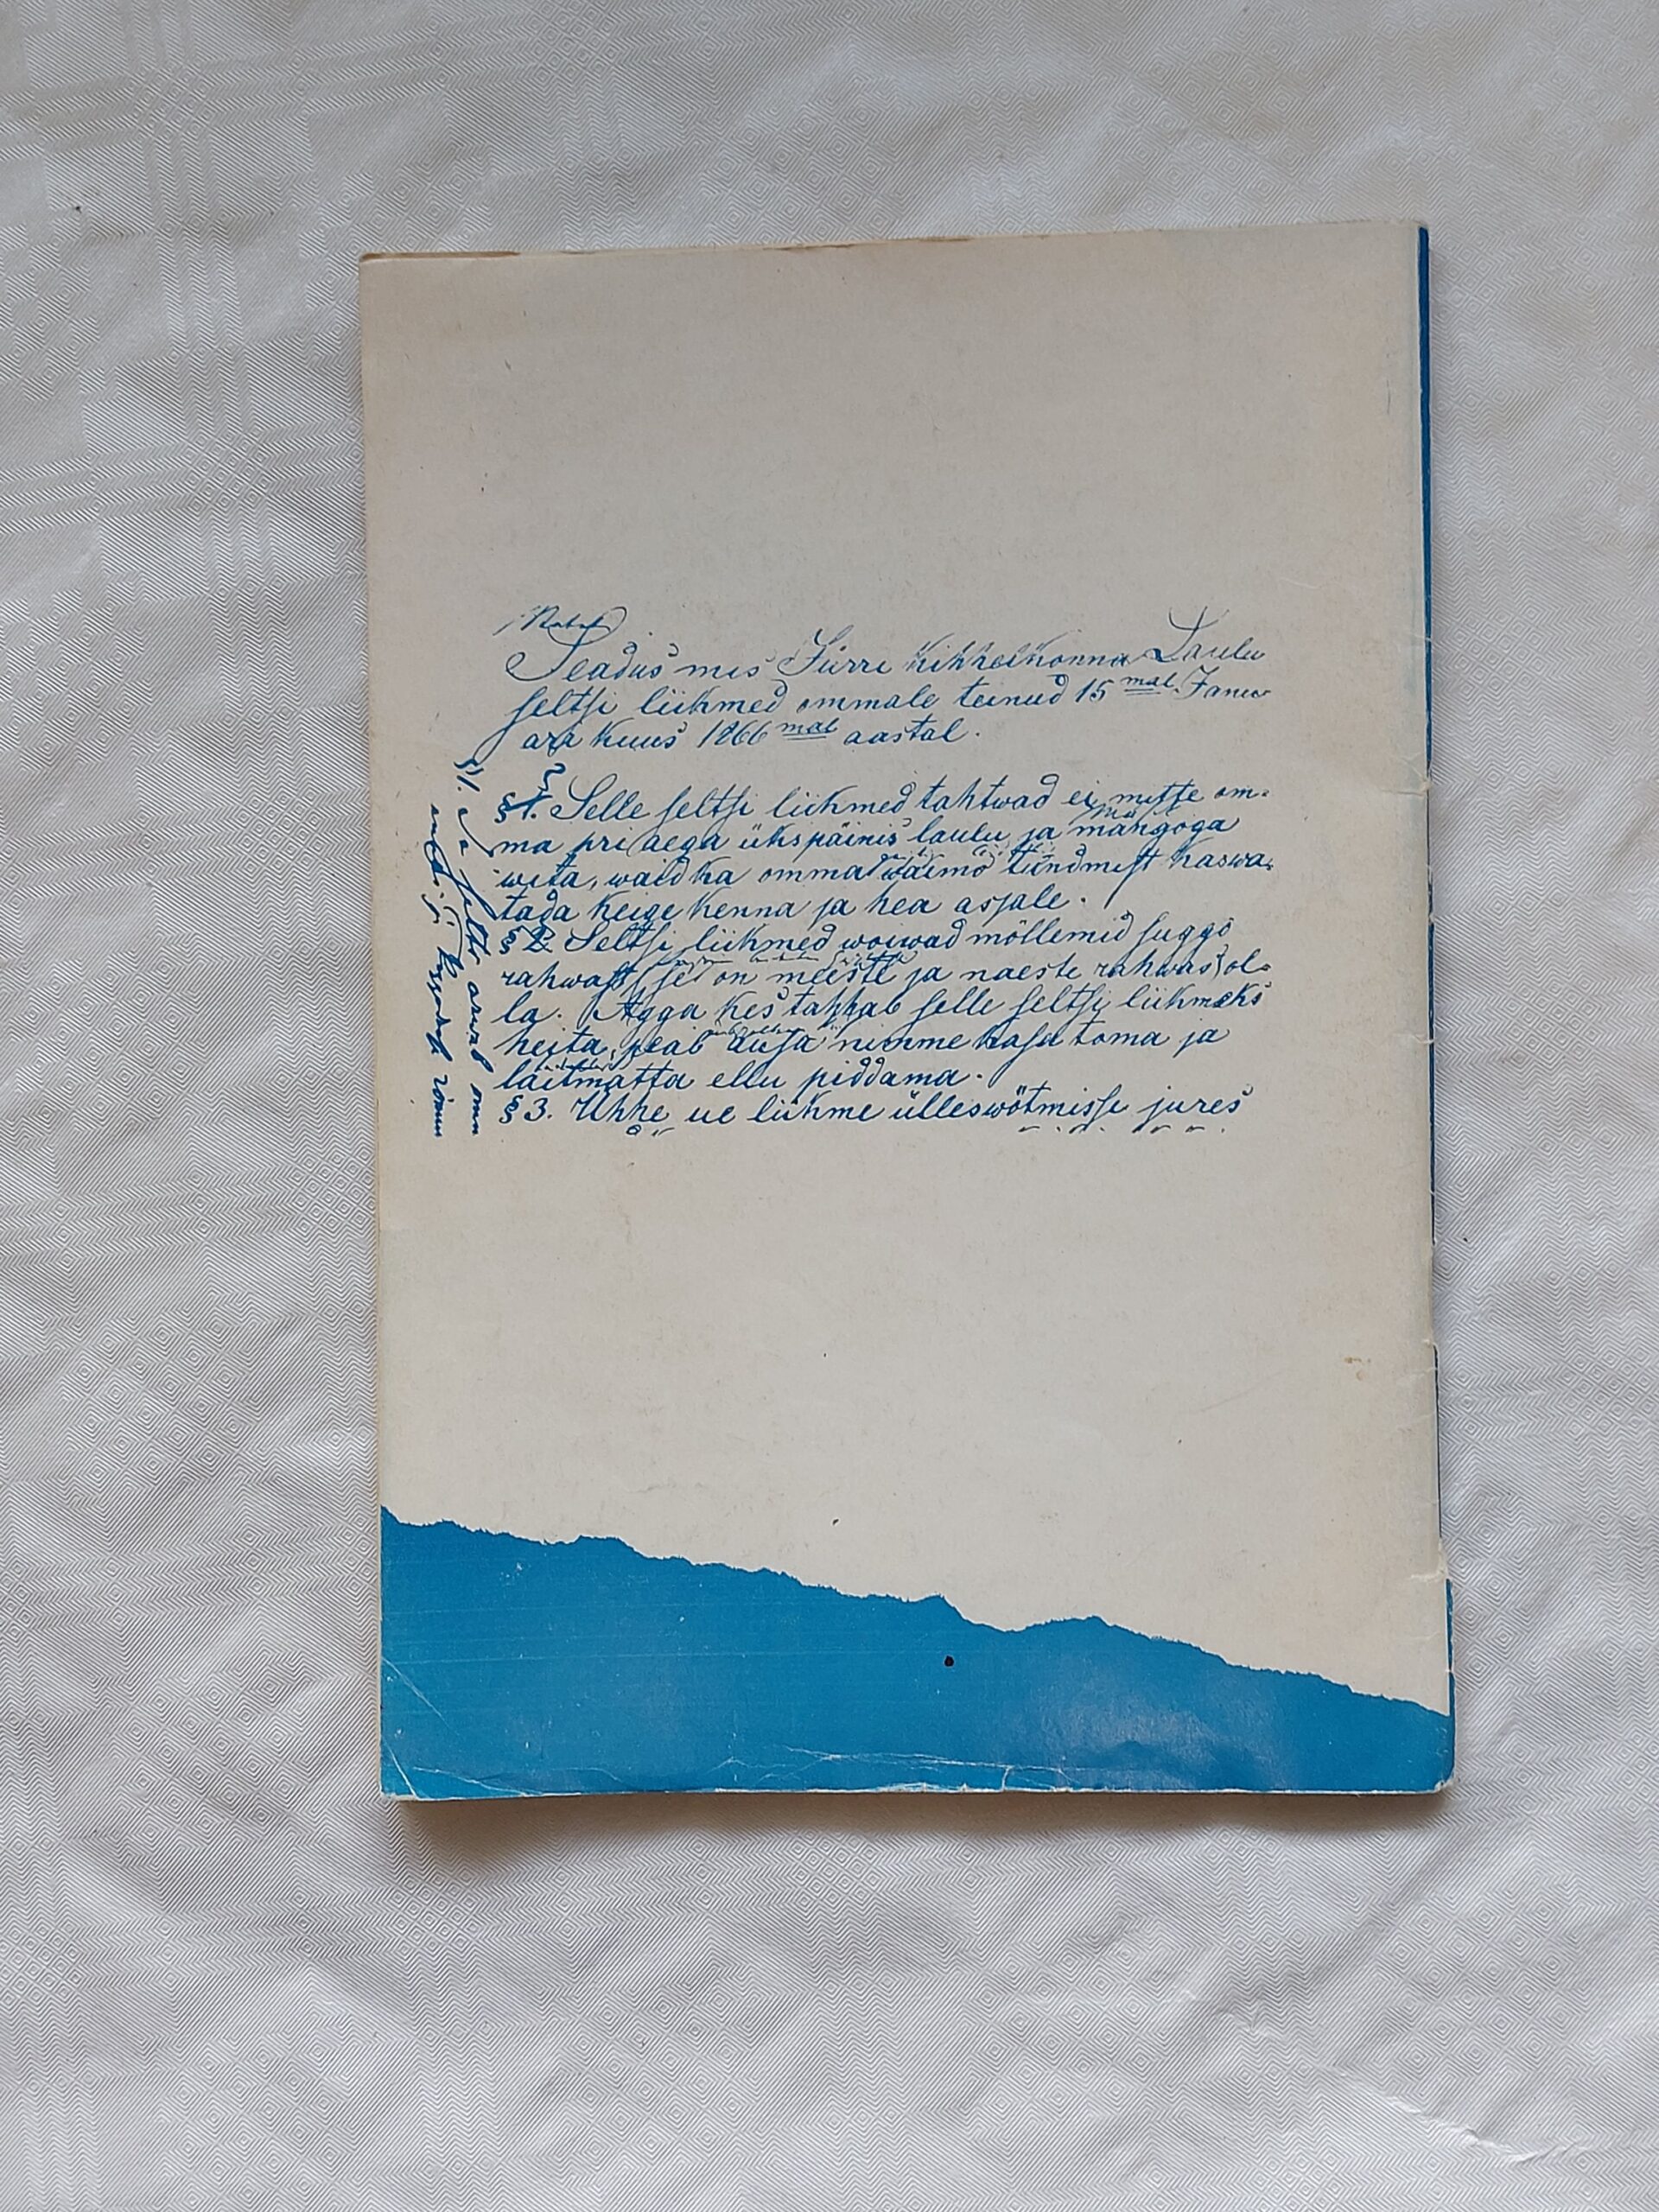 Seadus mis Jürri kihhelkonna Laulu
seltsi liikmed ommale teinud 15 mal Janu-
ari kuus 1866 mal aastal.
§ 1. Selle seltsi liikmed tahtwad ei mitte om-
ma pri aega ükspäinis laulu ja mängoga
wita, waid ka omma waimo tundmist kaswa-
tada keige kenna ja hea asjale.
§ 2. Seltsi liikmed woiwad möllemid suggo
rahwast (se on meeste ja naeste rahwas) ol-
la. Agga kes tahhab selle seltsi liikmeks
heita, peab ausa nimme kasa toma ja
laitmatta ellu piddama.
§ 3. Uhhe ue liikme ülleswötmisse jures
§ 1. selts